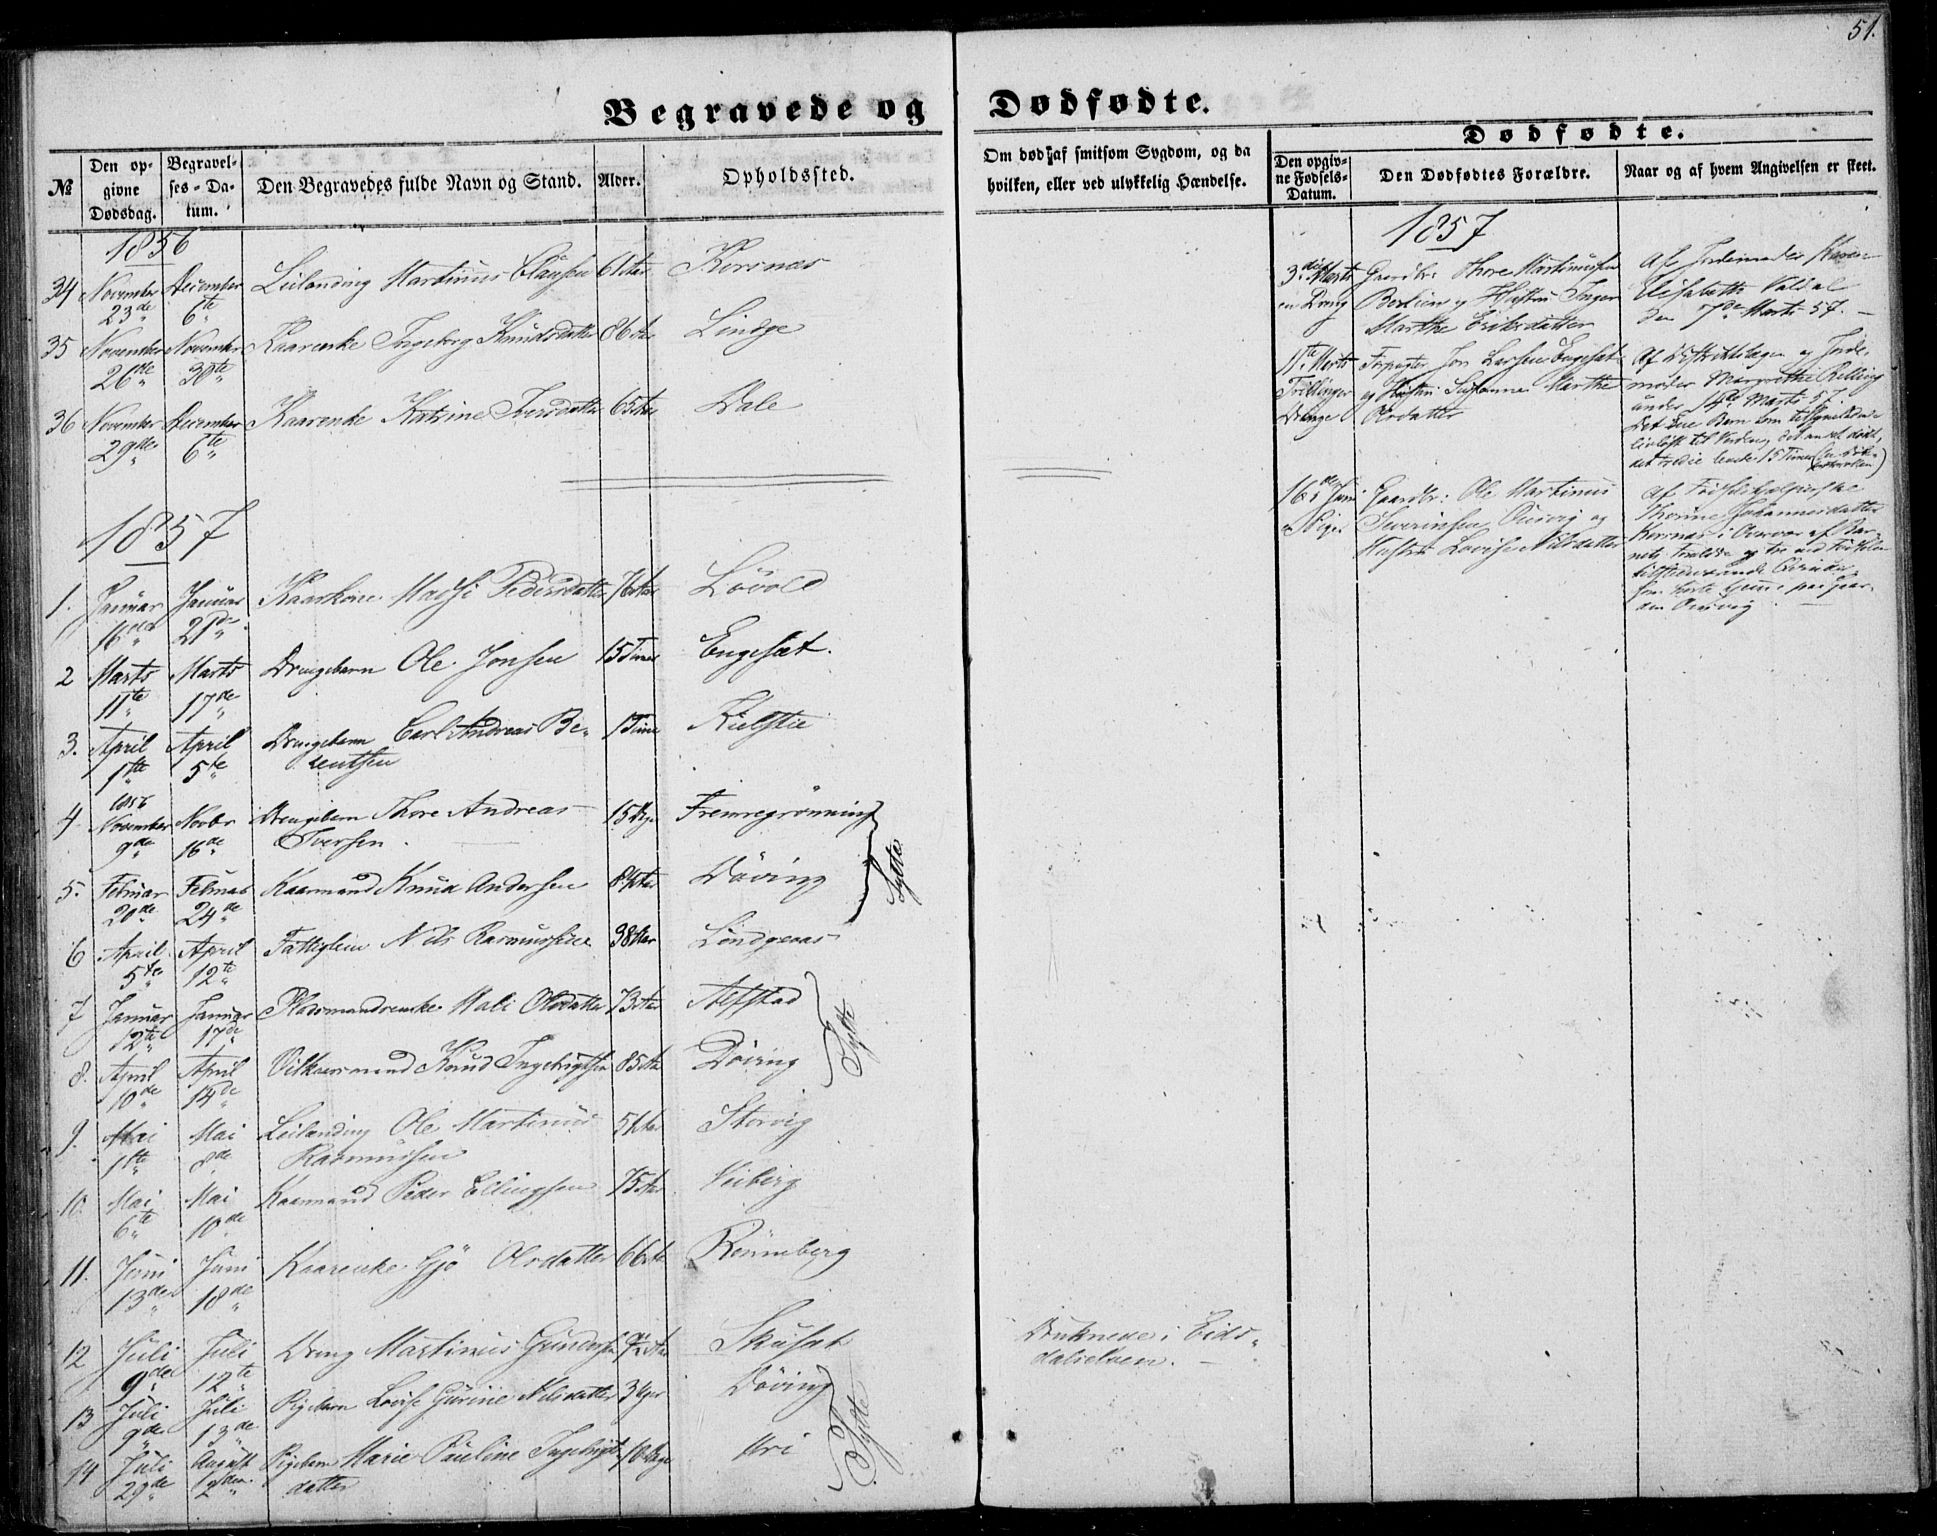 51.
Begravede og Dødfødte.
Dødfødte.
№
Den opgivne Dødsdag.
Begravelses-Datum.
Den Begravedes fulde Navn og Stand.
Alder.
Opholdssted.
Om død af smitsom Sygdom, og da hvilken, eller ved ulykkelig Hændelse.
Den opgivne Fødsels-Datum.
Den Dødfødtes Forældre.
Naar og af hvem Angivelsen er skeet.
1856
34 November December Leilænding Martinus Clausen 61 Aar Korsnæs
23de 6te
35 November November Kaarenke Ingeborg Knudsdatter 86 Aar Lindge
26de 30te
36 November December Kaarenke Katrine Iversdatter 65 Aar Dale
29de 6te
1857
1. Januar Januar Kaarkone Madsi Pedersdatter 76 Aar Løvold
16de 21de
2 Marts Marts Drengebarn Ole Jonsen 15 Timer Engesæt.
11te 17de
3. April April Drengebarn Carl Andreas Be- 1 Time
1ste 5te rentsen
1856
4 November Novbr Drengebarn Thore Andreas 15 Dage Fremregrønning
9de 16de Iversen
5. Februar Februar Kaarmand Knud Andersen 84 Aar Døving
20de 24de
Sylte
6 April April Fattiglem Nils Rasmussen 38 Aar
5te 12te
7 Januar Januar Pladsmandsenke Mali Olsdatter 73 Aar Alfstad
12te 17de
8. April April Vilkaarsmand Knud Ingebrigtsen 85 Aar Døving
10de 14de
Sylte
9. Mai Mai Leilænding Ole Martinus 51 Aar Storvig
1ste 8de Rasmussen
10. Mai Mai Kaarmand Peder Ellingsen 75 Aar Veiberg
6te 10de
11. Juni Juni Kaarenke Gjø Olsdatter 66 Aar Rønneberg
13de 18de
12 Juli Juli Dreng Martinus Gundersen Aar Skusat Druknede i Eids-
9de 12te dalselven.
13 Juli Juli Pigebarn Lovise Gurine Nilsdatter 3 Uger Døving
9de 13de
14 Juli August Pigebarn Marie Pauline Ingebrigts- 10 Dage Uri
29de 2den datter
Sylte
1857
3die Marts Gaardbr: Thore Martinussen Af Jordemoder Karen
en Dreng og Hustru Inger Elisabeth Valdal
Marthe Eriksdatter den 7de Marts 57.
11te Marts Forpagter Jon Larsen Engesæt Af Distriktslægen og Jorde-
Trillinger og Hustru Susanne Marthe moder Margrethe Relling
Drenge Olsdatter under 14de Marts 57.
Det ene Barn kom
livløst til Verden, det andet dødt,
det tredie levede 15 Timer
16de Juni Gaardbr: Ole Martinus Af Fødselshjælperske
en Pige. Severinsen Ousvig og Thorine Johannesdatter
Hustru Lovise Nilsdatter Korsnæs i Overvær af Bar-
nets Forældre og tre ved Fødselen
tilstedeværende
paa Gaar-
den Ousvig.